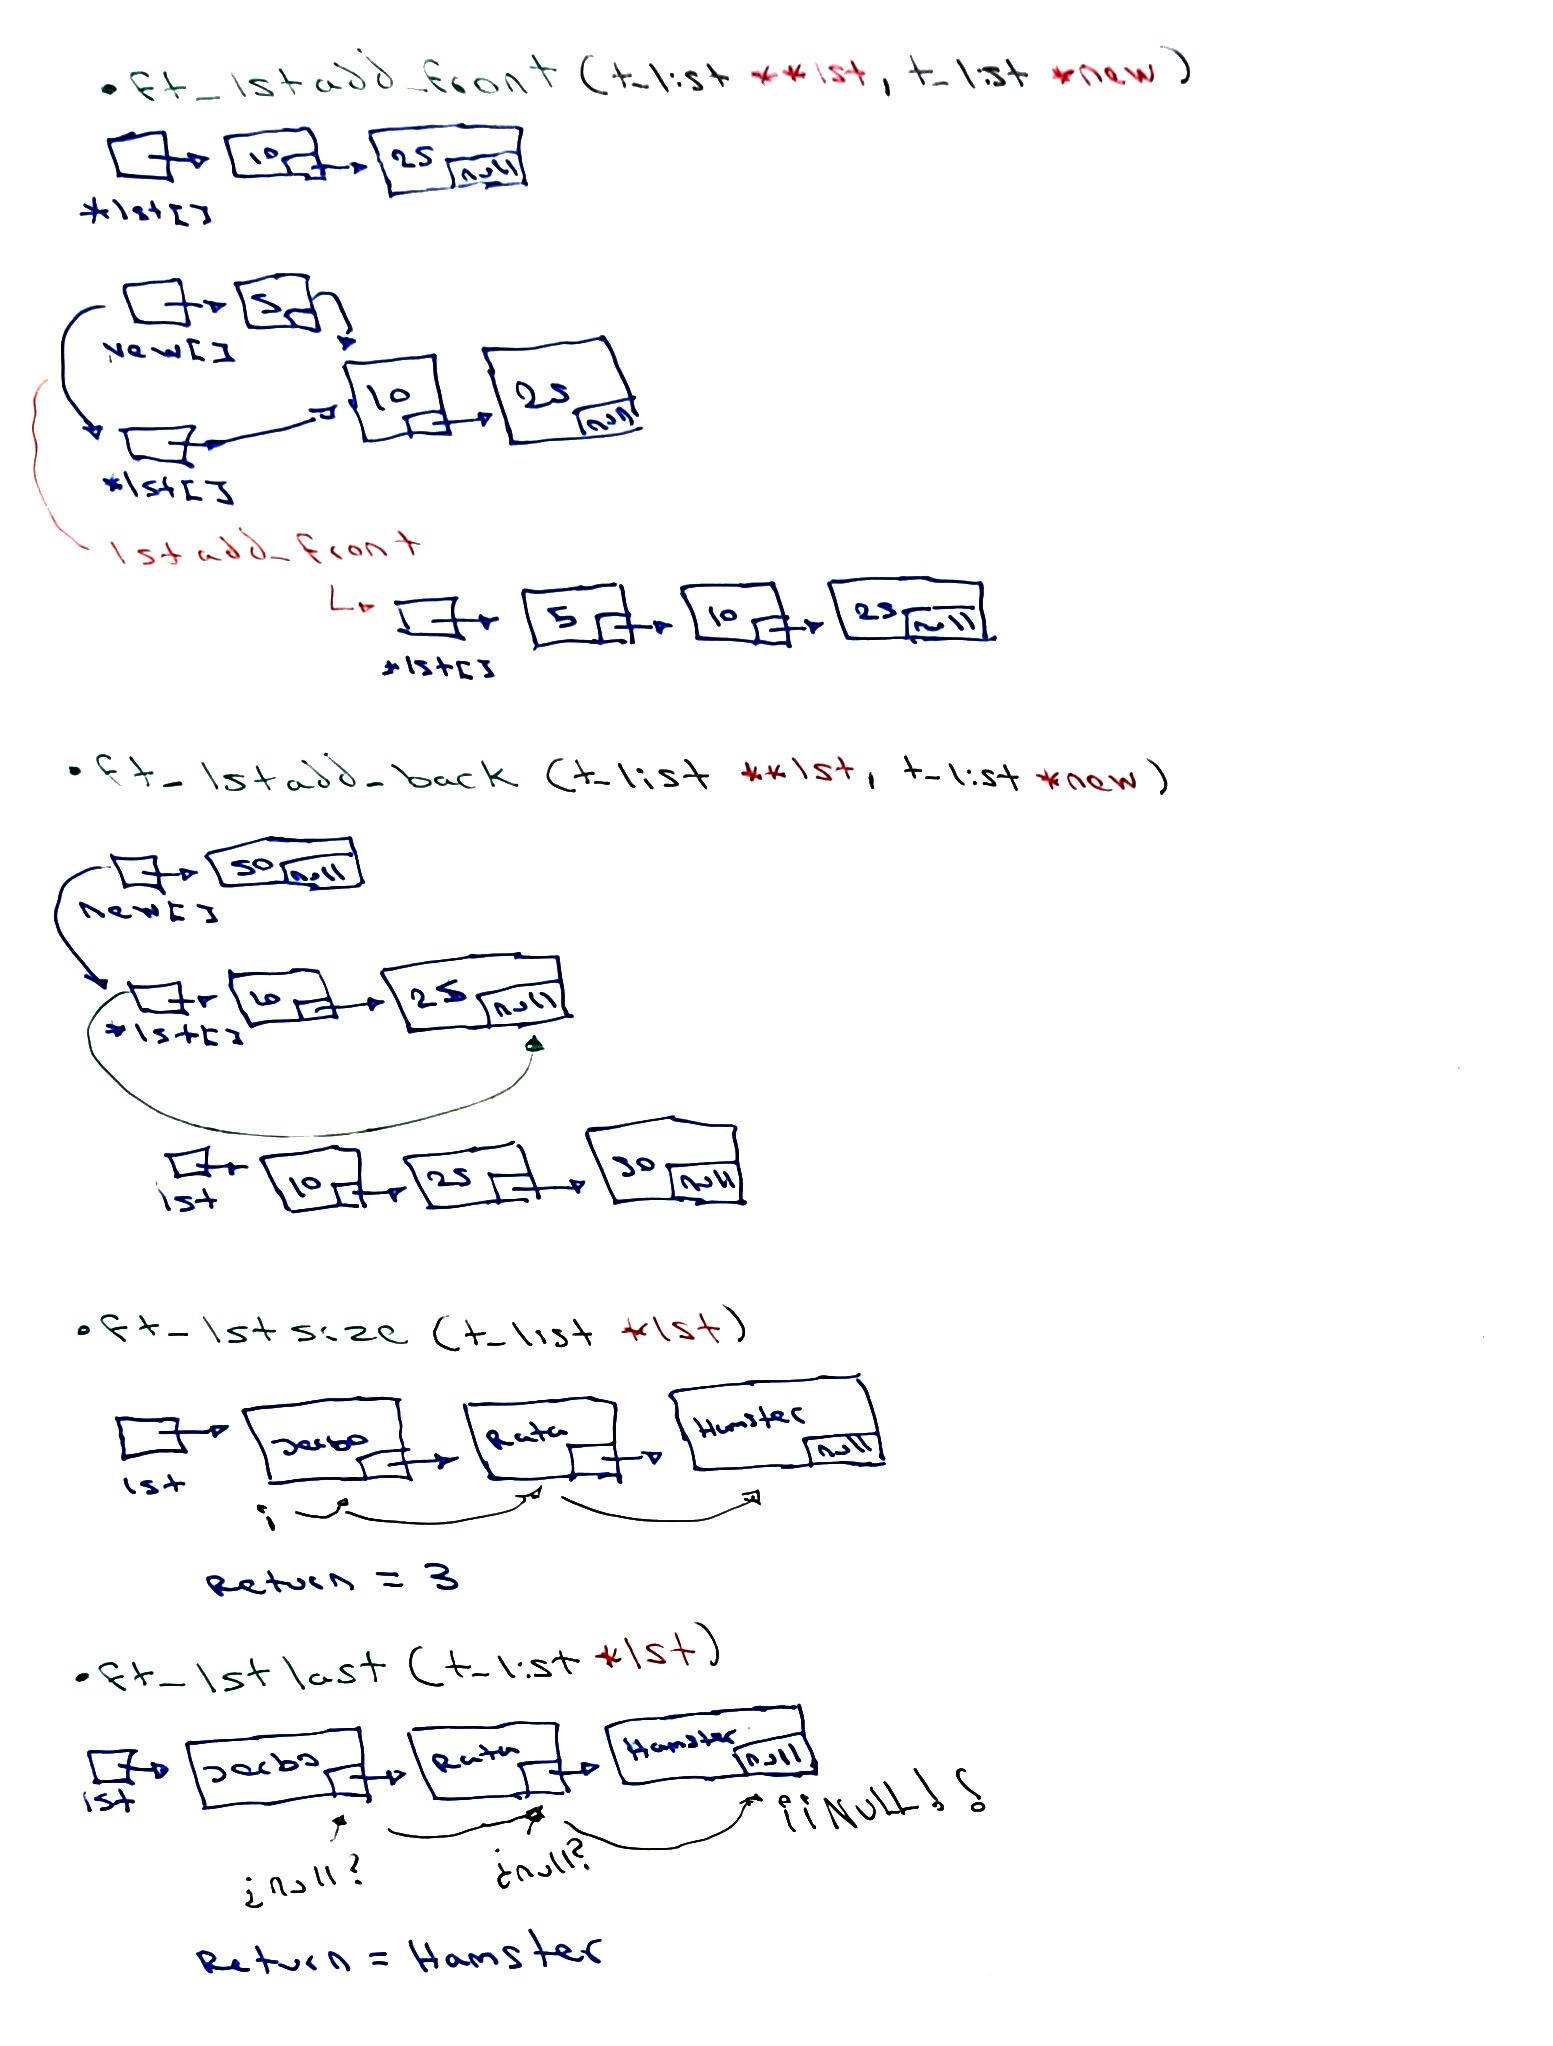 • ft_lstadd_front (t_list **lst, t_list *new)
10 25 null
*lst[]
5
new[]
10 25 null
*lst[]
lstadd_front
5 10 25 null
*lst[]
• ft_lstadd_back (t_list **lst, t_list *new)
50 null
new[]
10 25 null
*lst[]
10 25 50 null
lst
• ft_lstsize (t_list *lst)
Jerbo Rata Hamster null
lst
i
Return = 3
• ft_lstlast (t_list *lst)
Jerbo Rata Hamster null
lst
¡¡NULL!!
¿null? ¿null?
Return = Hamster